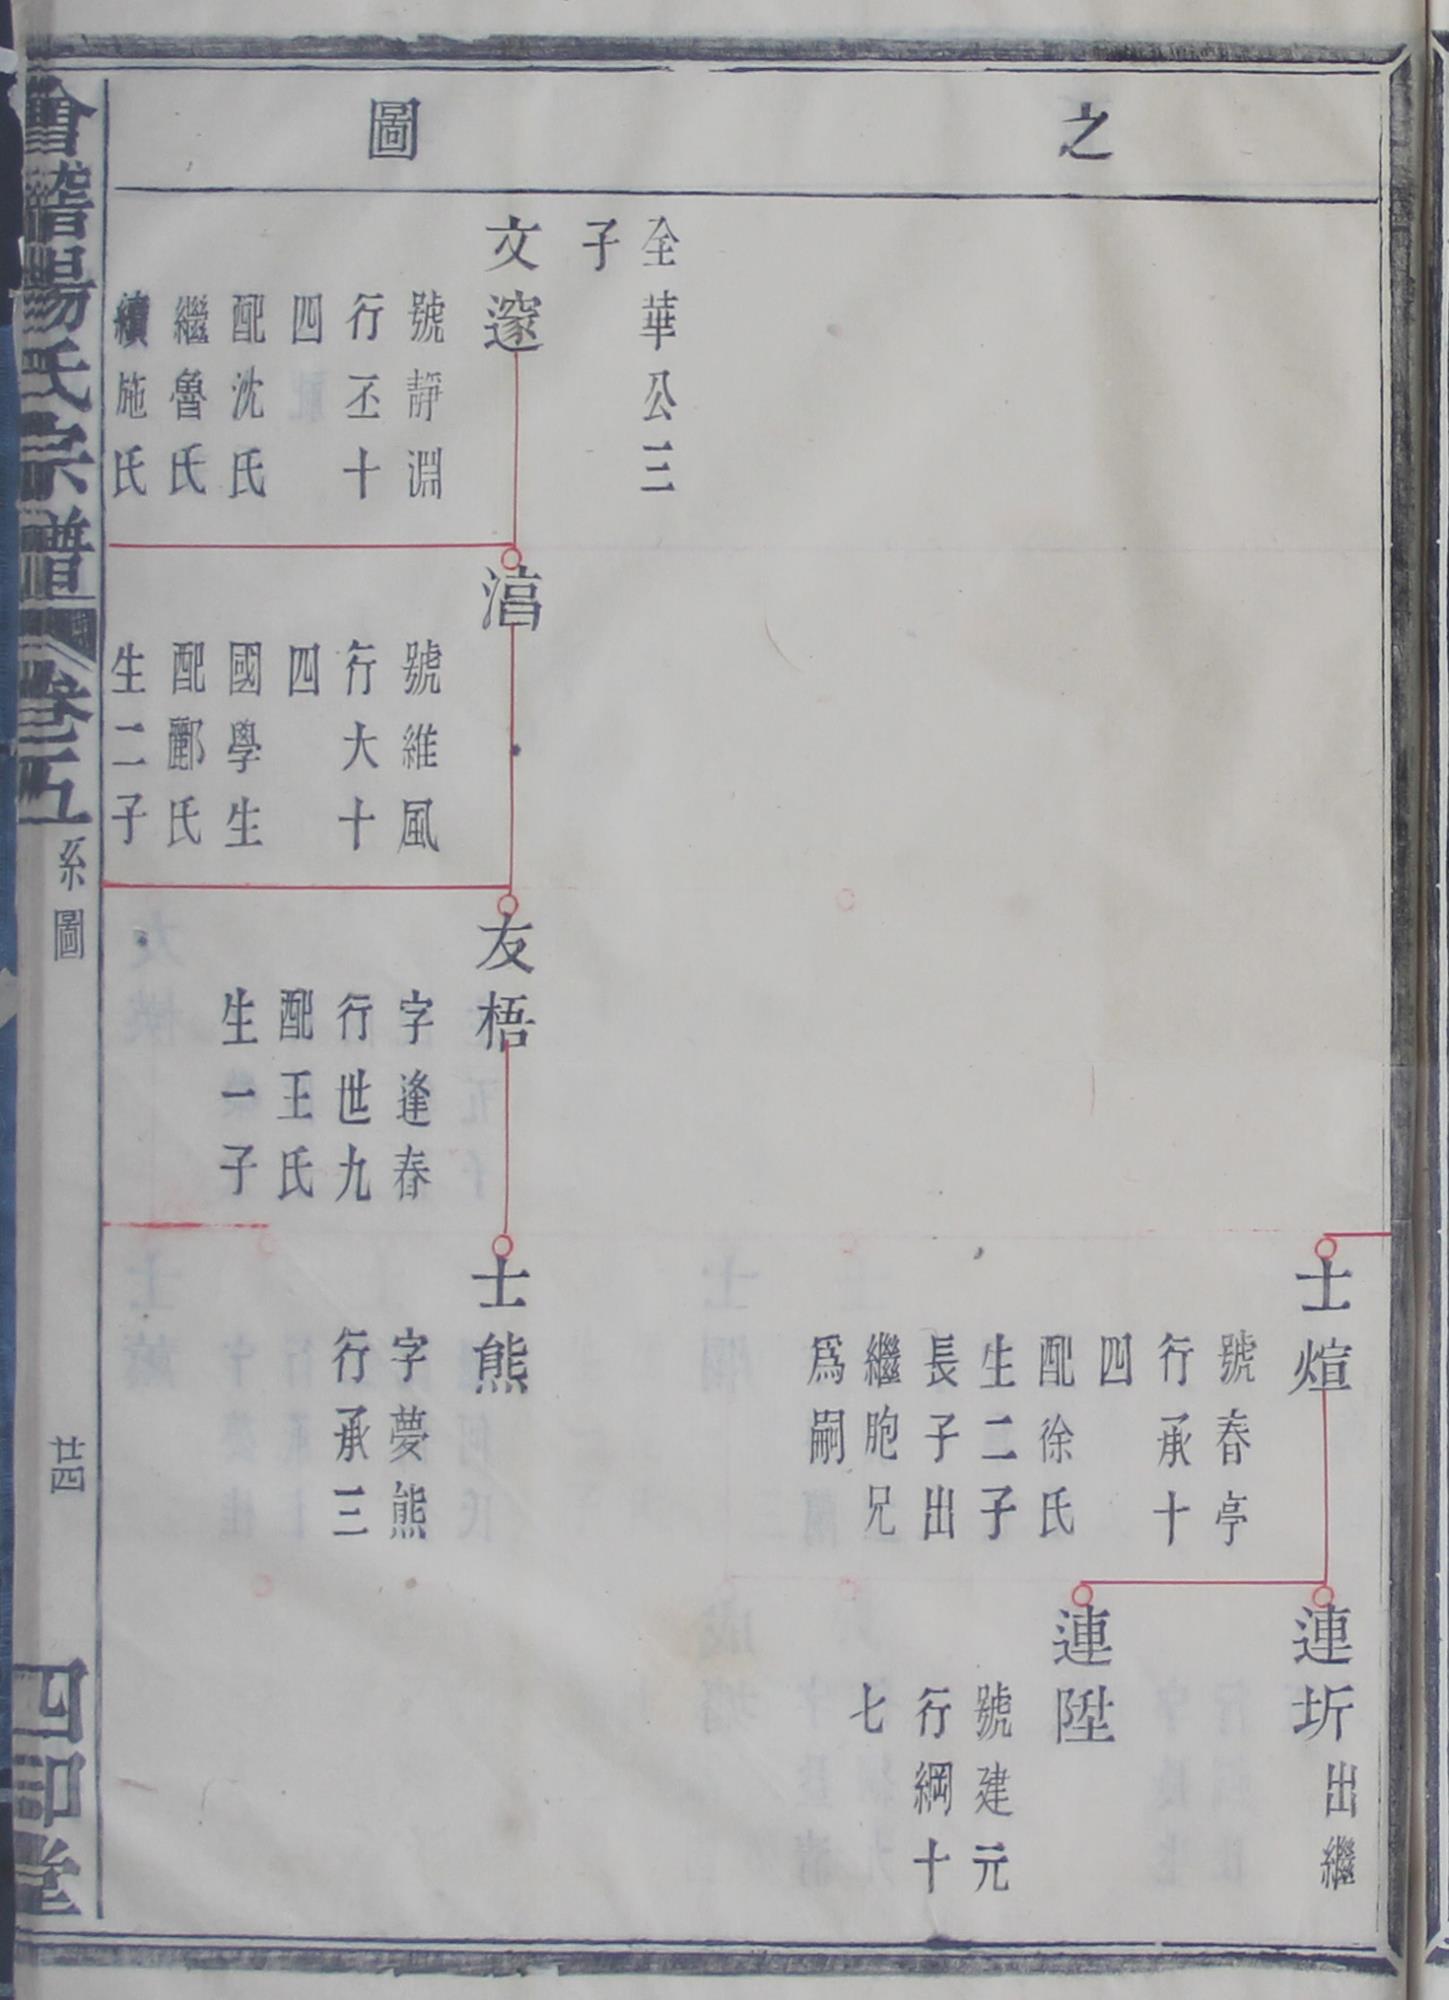 之
圖
士煊
號春亭
行承十
四
配徐氏
生二子
長子出
繼胞兄
爲嗣
連圻
出繼
連陞
號建元
行綱十
七
全華公三
子
文邃
號靜淵
行丕十
四
配沈氏
繼魯氏
續施氏
湻
號維風
行大十
四
國學生
配酈氏
生二子
友梧
字逢春
行世九
配王氏
生一子
士熊
字夢熊
行承三
會稽楊氏宗譜
卷五
系圖
廿四
四印堂